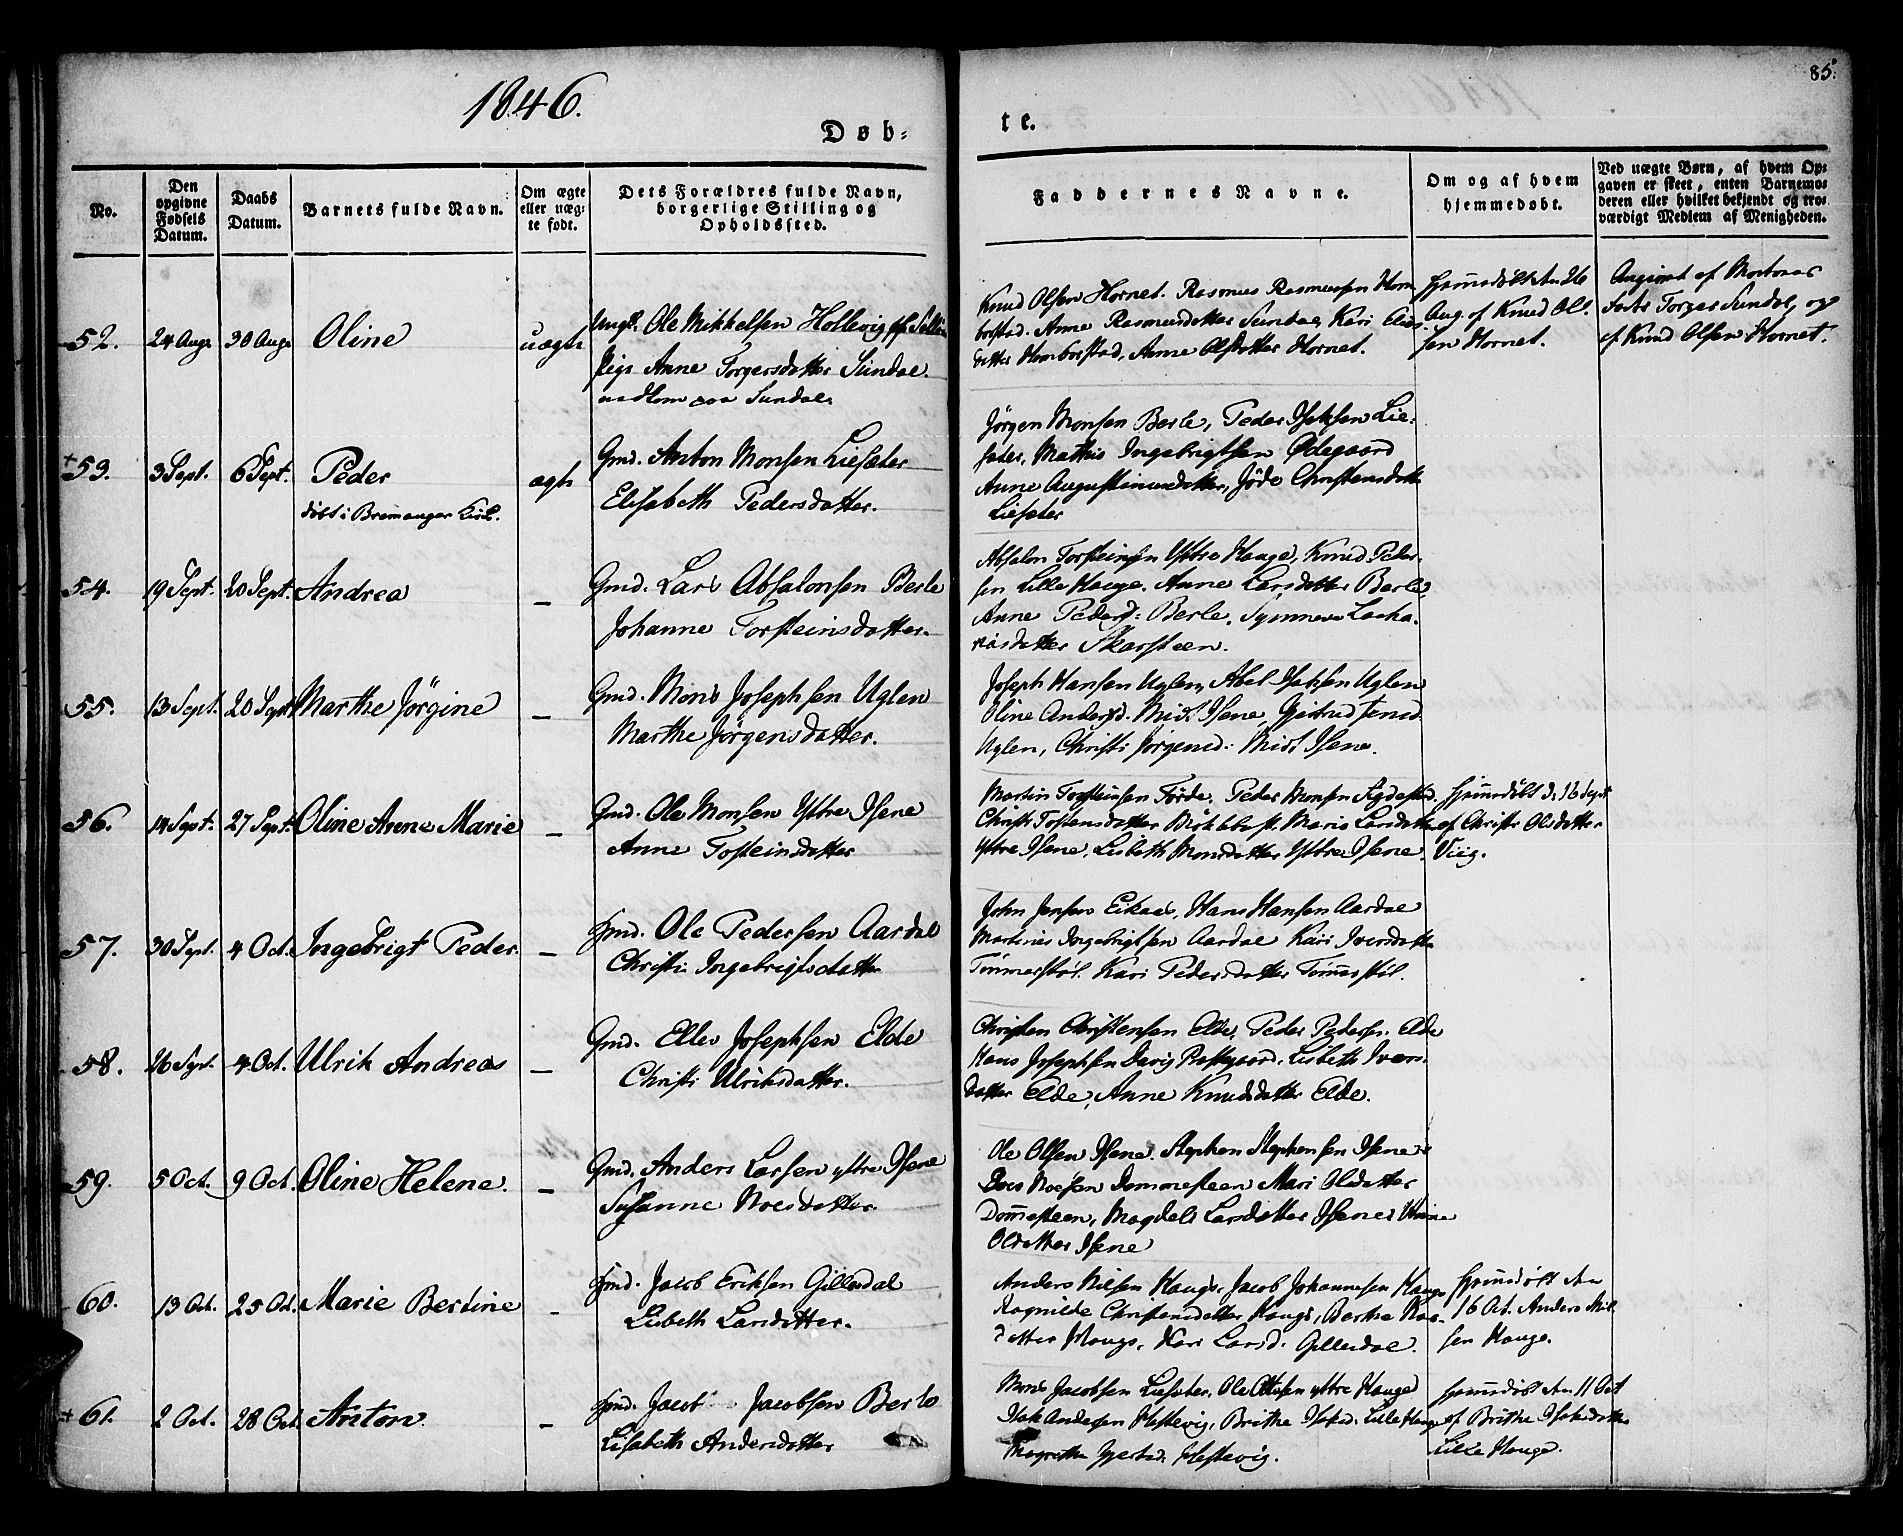 1846.
85.
Døb-
te.
No.
Den opgivne Fødsels Datum.
Daabs Datum.
Barnets fulde Navn.
Om ægte eller uægte født.
Dets Forældres fulde Navn, borgerlige Stilling og Opholdssted.
Faddernes Navne.
Om og af hvem hjemmedøbt.
Ved uægte Børn, af hvem Opgaven er skeet, enten Barnemoderen eller hvilket bekjendt og troværdigt Medlem af Menigheden.
52. 24 Aug. 30 Aug. Oline uægte
Ungk. Ole Mikkelsen Hollevig
Pige Anne Torgersdatter Sundal
Knud Olsen Hornet. Rasmus Rasmussen Hom-
borstad. Anne Rasmusdatter Sundal, Kari Elias-
datter Homborstad, Anne Olsdatter Hornet.
Hjemmedøbt den 26
Aug. af Knud Ol-
sen Hornet.
Sundal, og
af Knud Olsen Hornet.
+53. 3 Sept. 6 Sept. Peder ægte
døbt i Bremanger Kirke.
Gmd. Anton Monsen Liesæter
Elisabeth Pedersdatter.
Jörgen Monsen Berle, Peder Isaksen Lie-
sæter, Mathis Ingebrigtsen Ødegaard
Anne Augustinusdatter, Christensdatter
Liesæter
54. 19 Sept. 20 Sept. Andrea –
Gmd. Lars Absalonsen Berle
Johanne Torsteinsdatter.
Absalon Torsteinsen Ystre Hauge, Knud Peder-
sen Lille Hauge. Anne Larsdatter Berle,
Anne Pedersd: Berle. Synneve Zacha-
riasdatter Skarsteen.
55. 13 Sept. 20 Sept. Marthe Jörgine –
Gmd. Mons Josephsen Uglen
Marthe Jörgensdatter.
Joseph Hansen Uglen, Abel Isaksen Uglen
Oline Andersd. Midt Isene, Gjertrud
Uglen, Christi Jörgensd: Midt Isene.
56. 14 Sept. 27 Sept. Oline Anne Marie –
Gmd. Ole Monsen Ystre Isene
Anne Tosteinsdatter
Martin Torsteinsen Förde. Peder Monsen
Christi Tostensdatter Marie Larsdatter
Ystre Isene, Lisbeth Monsdatter Ystre Isene.
Hjemmedöbt d. 16 Sept
af Christi Olsdatter
Viig.
57. 30 Sept. 4 Oct. Ingebrigt Peder. –
Gmd. Ole Pedersen Aardal
Christi Ingebrigtsdatter
John Jensen Eikaas, Hans Hansen Aardal
Martinus Ingebrigtsen Aardal Kari Iversdatter
Tömmerstöl. Kari Pedersdatter Tömerstöl.
58. 26 Sept. 4 Oct. Ulrik Andreas –
Gmd. Ellev Josephsen Elde
Christi Ulriksdatter.
Christen Christensen Elde, Peder Pedersen Elde
Hans Josephsen Davig Præstgaard. Lisbeth Ivers-
datter Elde, Anne Knudsdatter Elde.
59. 5 Oct. 9 Oct. Oline Helene. –
Gmd. Anders Larsen ystre Isene
Susanne Noesdatter.
Ole Olsen Isene. Stephen Stephensen Isene
Noesen Dommesteen Mari Olsdatter
Dom̄esteen, Magdeli Larsdatter Isene
Olsdatter Isene
60. 13 Oct. 25 Oct. Marie Bertine –
Gmd. Jacob Eriksen Gillesdal
Lisbeth Larsdatter.
Anders Nilsen Hauge. Jacob Johannesen Hauge
Ragnilde Christensdatter Hauge, Berthe
datter Hauge, Kari Larsd. Gillesdal.
Hjemmedöbt den
16 Oct. Anders Nil-
sen Hauge.
+61. 2 Oct. 28 Oct. Anton –
Gmd. Jacob Jacobsen Berle
Lisabeth Andersdatter
Mons Jacobsen Liesæter. Ole Ottesen ystre Hauge
Isak Andersen Hestevig, Brithe Isaksd: Lille Hauge
Magrethe Hestevig.
Hjemmedöbt den 11 Oct
af Brithe Isaksdatter
Lille Hauge.